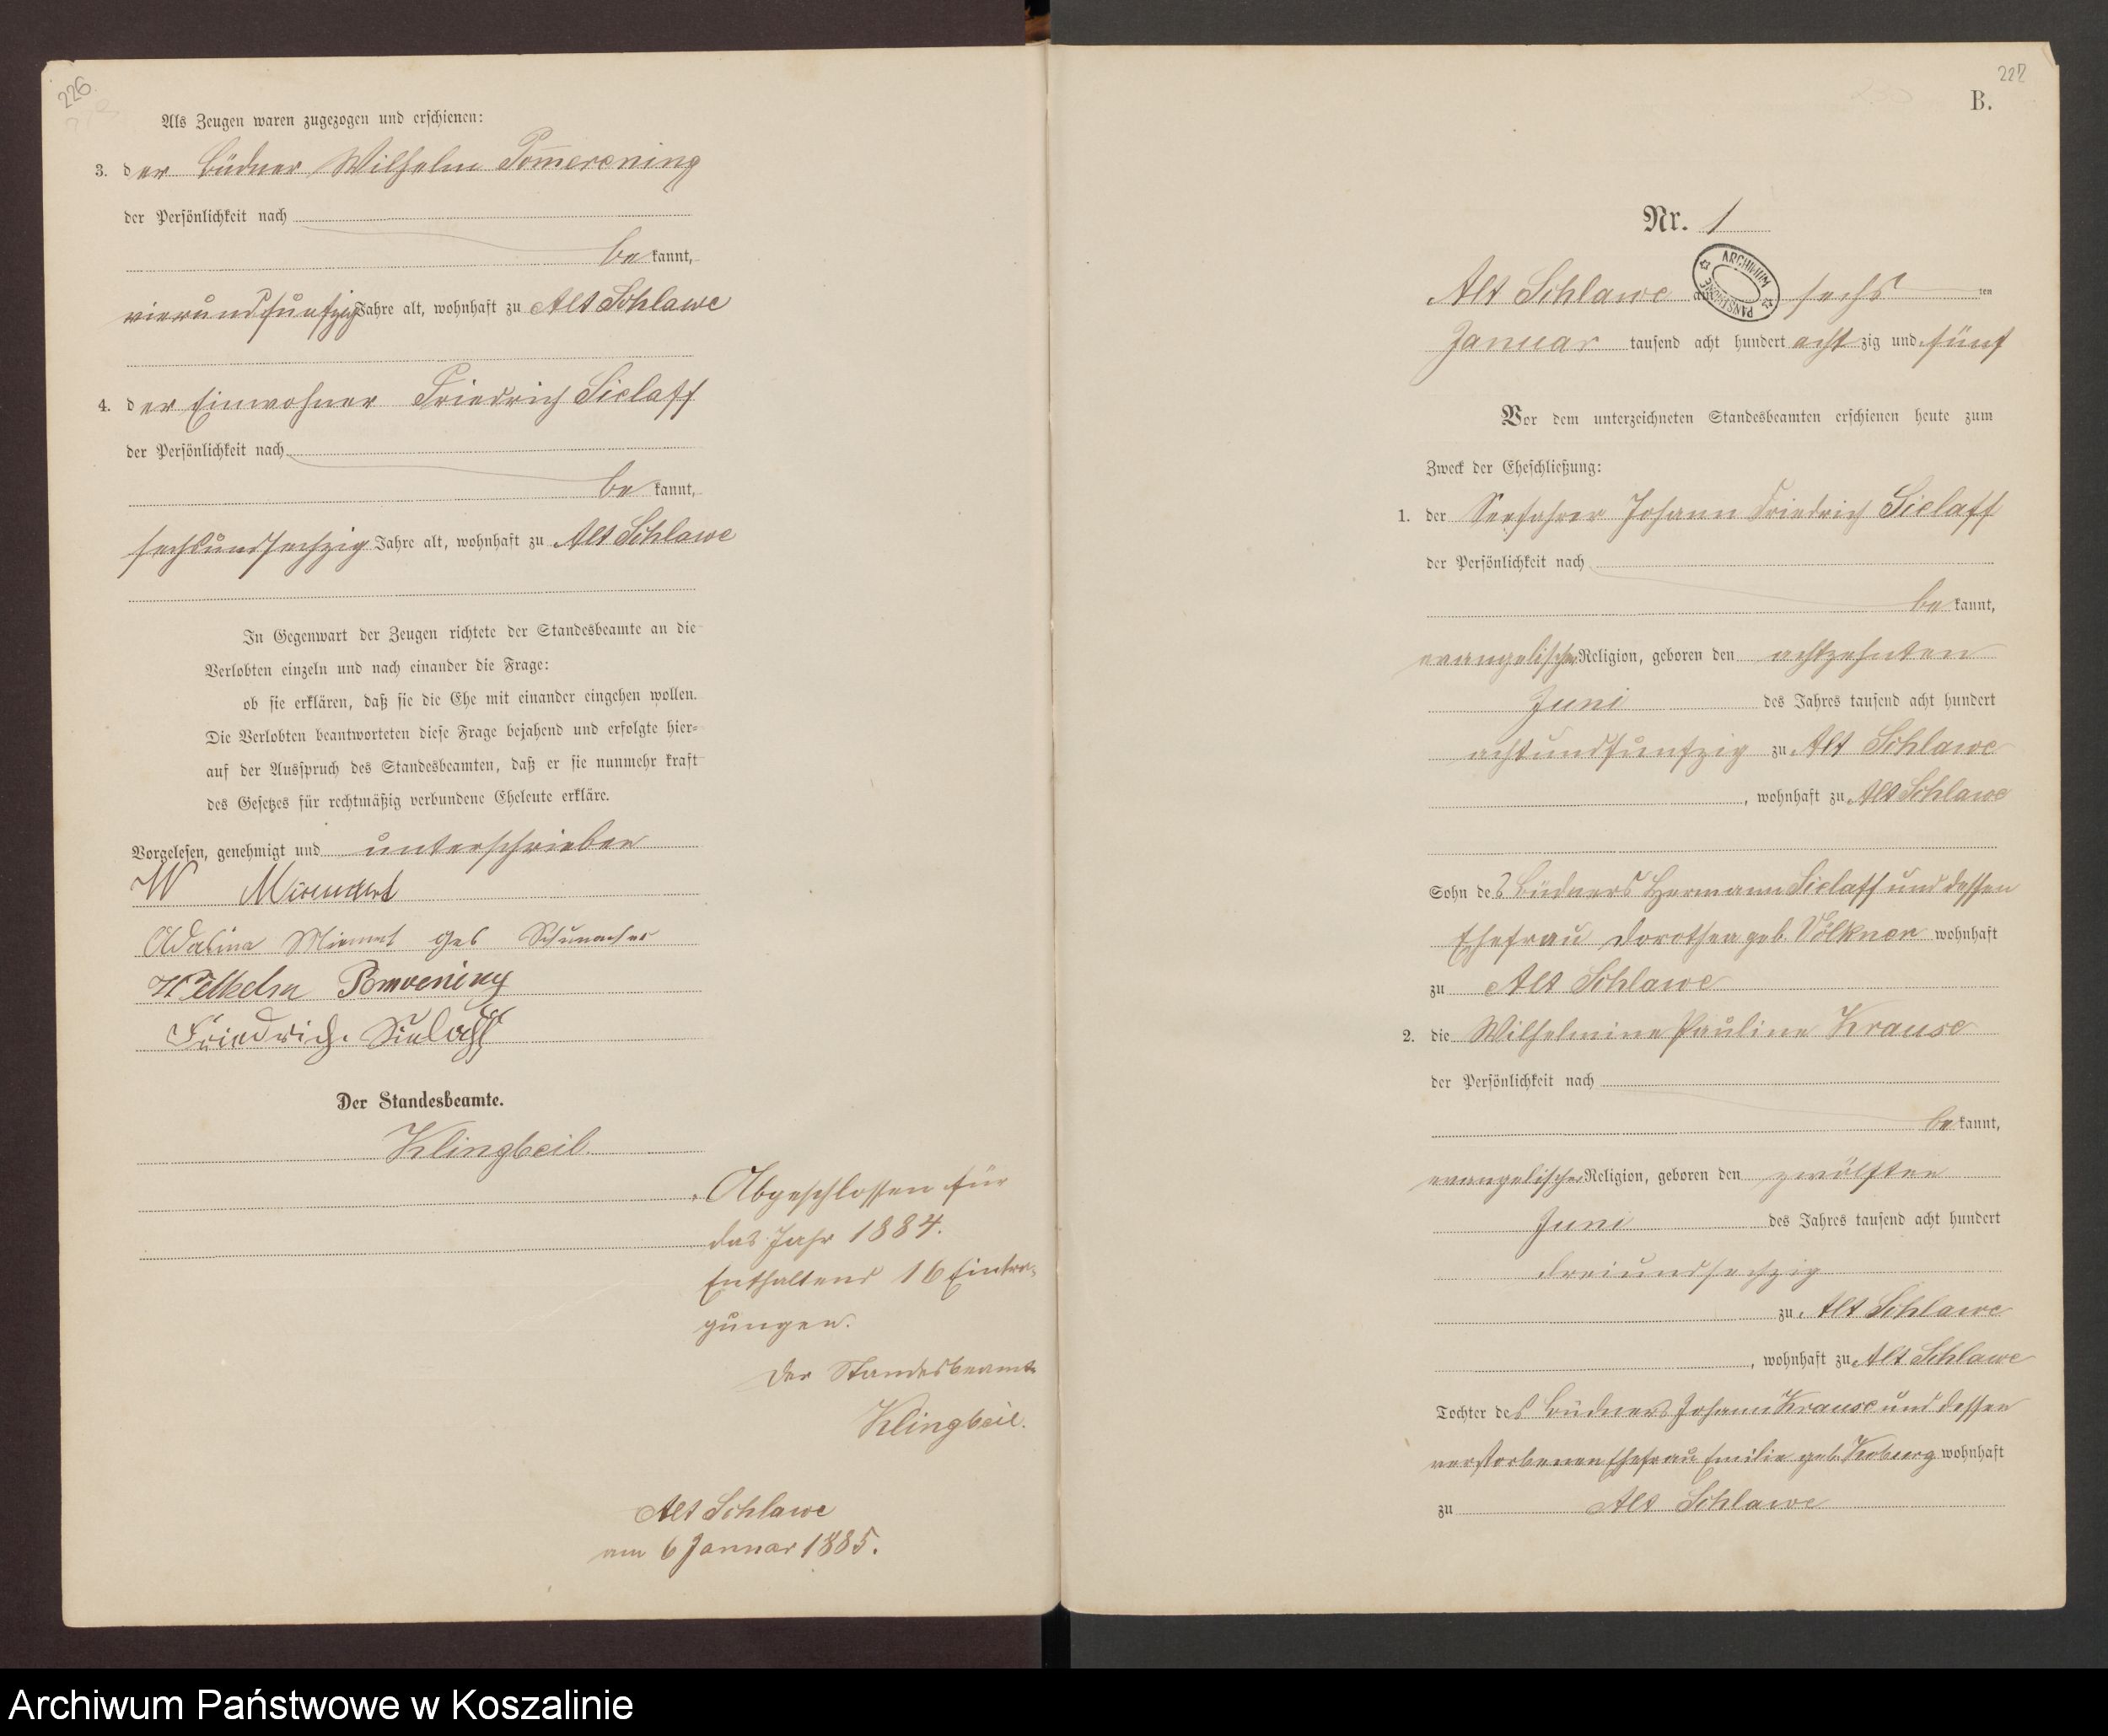 226
Als Zeugen waren zugezogen und erschienen:
3. der Büdner Wilhelm Pom̄erening
der Persönlichkeit nach
bekannt,
vierundfünfzig Jahre alt, wohnhaft zu Alt Schlawe
4. der Einwohner Friedrich Sielaff
der Persönlichkeit nach
bekannt,
sechsundsechzig Jahre alt, wohnhaft zu Alt Schlawe
In Gegenwart der Zeugen richtete der Standesbeamte an die
Verlobten einzeln und nach einander die Frage:
ob sie erklären, daß sie die Ehe mit einander eingehen wollen.
Die Verlobten beantworteten diese Frage bejahend und erfolgte hier=
auf der Ausspruch des Standesbeamten, daß er sie nunmehr kraft
des Gesetzes für rechtmäßig verbundene Eheleute erkläre.
Vorgelesen, genehmigt und unterschrieben
W
geb
Wilhelm
Friedrich Sielaff
Der Standesbeamte.
Klingbeil.
Abgeschlossen für
das Jahr 1884.
Enthaltend 16 Eintra=
gungen.
Der Standesbeamte
Klingbeil.
Alt Schlawe
am 6 Januar 1885.
227
B.
Nr. 1
Alt Schlawe am sechsten
ARCHIWUM PAŃSTWOWE
Januar tausend acht hundert achtzig und fünf
Vor dem unterzeichneten Standesbeamten erschienen heute zum
Zweck der Eheschließung:
1. der Seefahrer Johann Friedrich Sielaff
der Persönlichkeit nach
bekannt,
evangelischer Religion, geboren den achtzehnten
Juni des Jahres tausend acht hundert
achtundfünfzig zu Alt Schlawe
, wohnhaft zu Alt Schlawe
Sohn des Büdners Hermann Sielaff und dessen
Ehefrau Dorothea geb. Völkner wohnhaft
zu Alt Schlawe
2. die Wilhelmine Pauline Krause
der Persönlichkeit nach
bekannt,
evangelischer Religion, geboren den zwölften
Juni des Jahres tausend acht hundert
dreiundsechzig
zu Alt Schlawe
, wohnhaft zu Alt Schlawe
Tochter des Büdners Johann Krause und dessen
verstorbenen Ehefrau Emilie geb. Koburg wohnhaft
zu Alt Schlawe
Archiwum Państwowe w Koszalinie